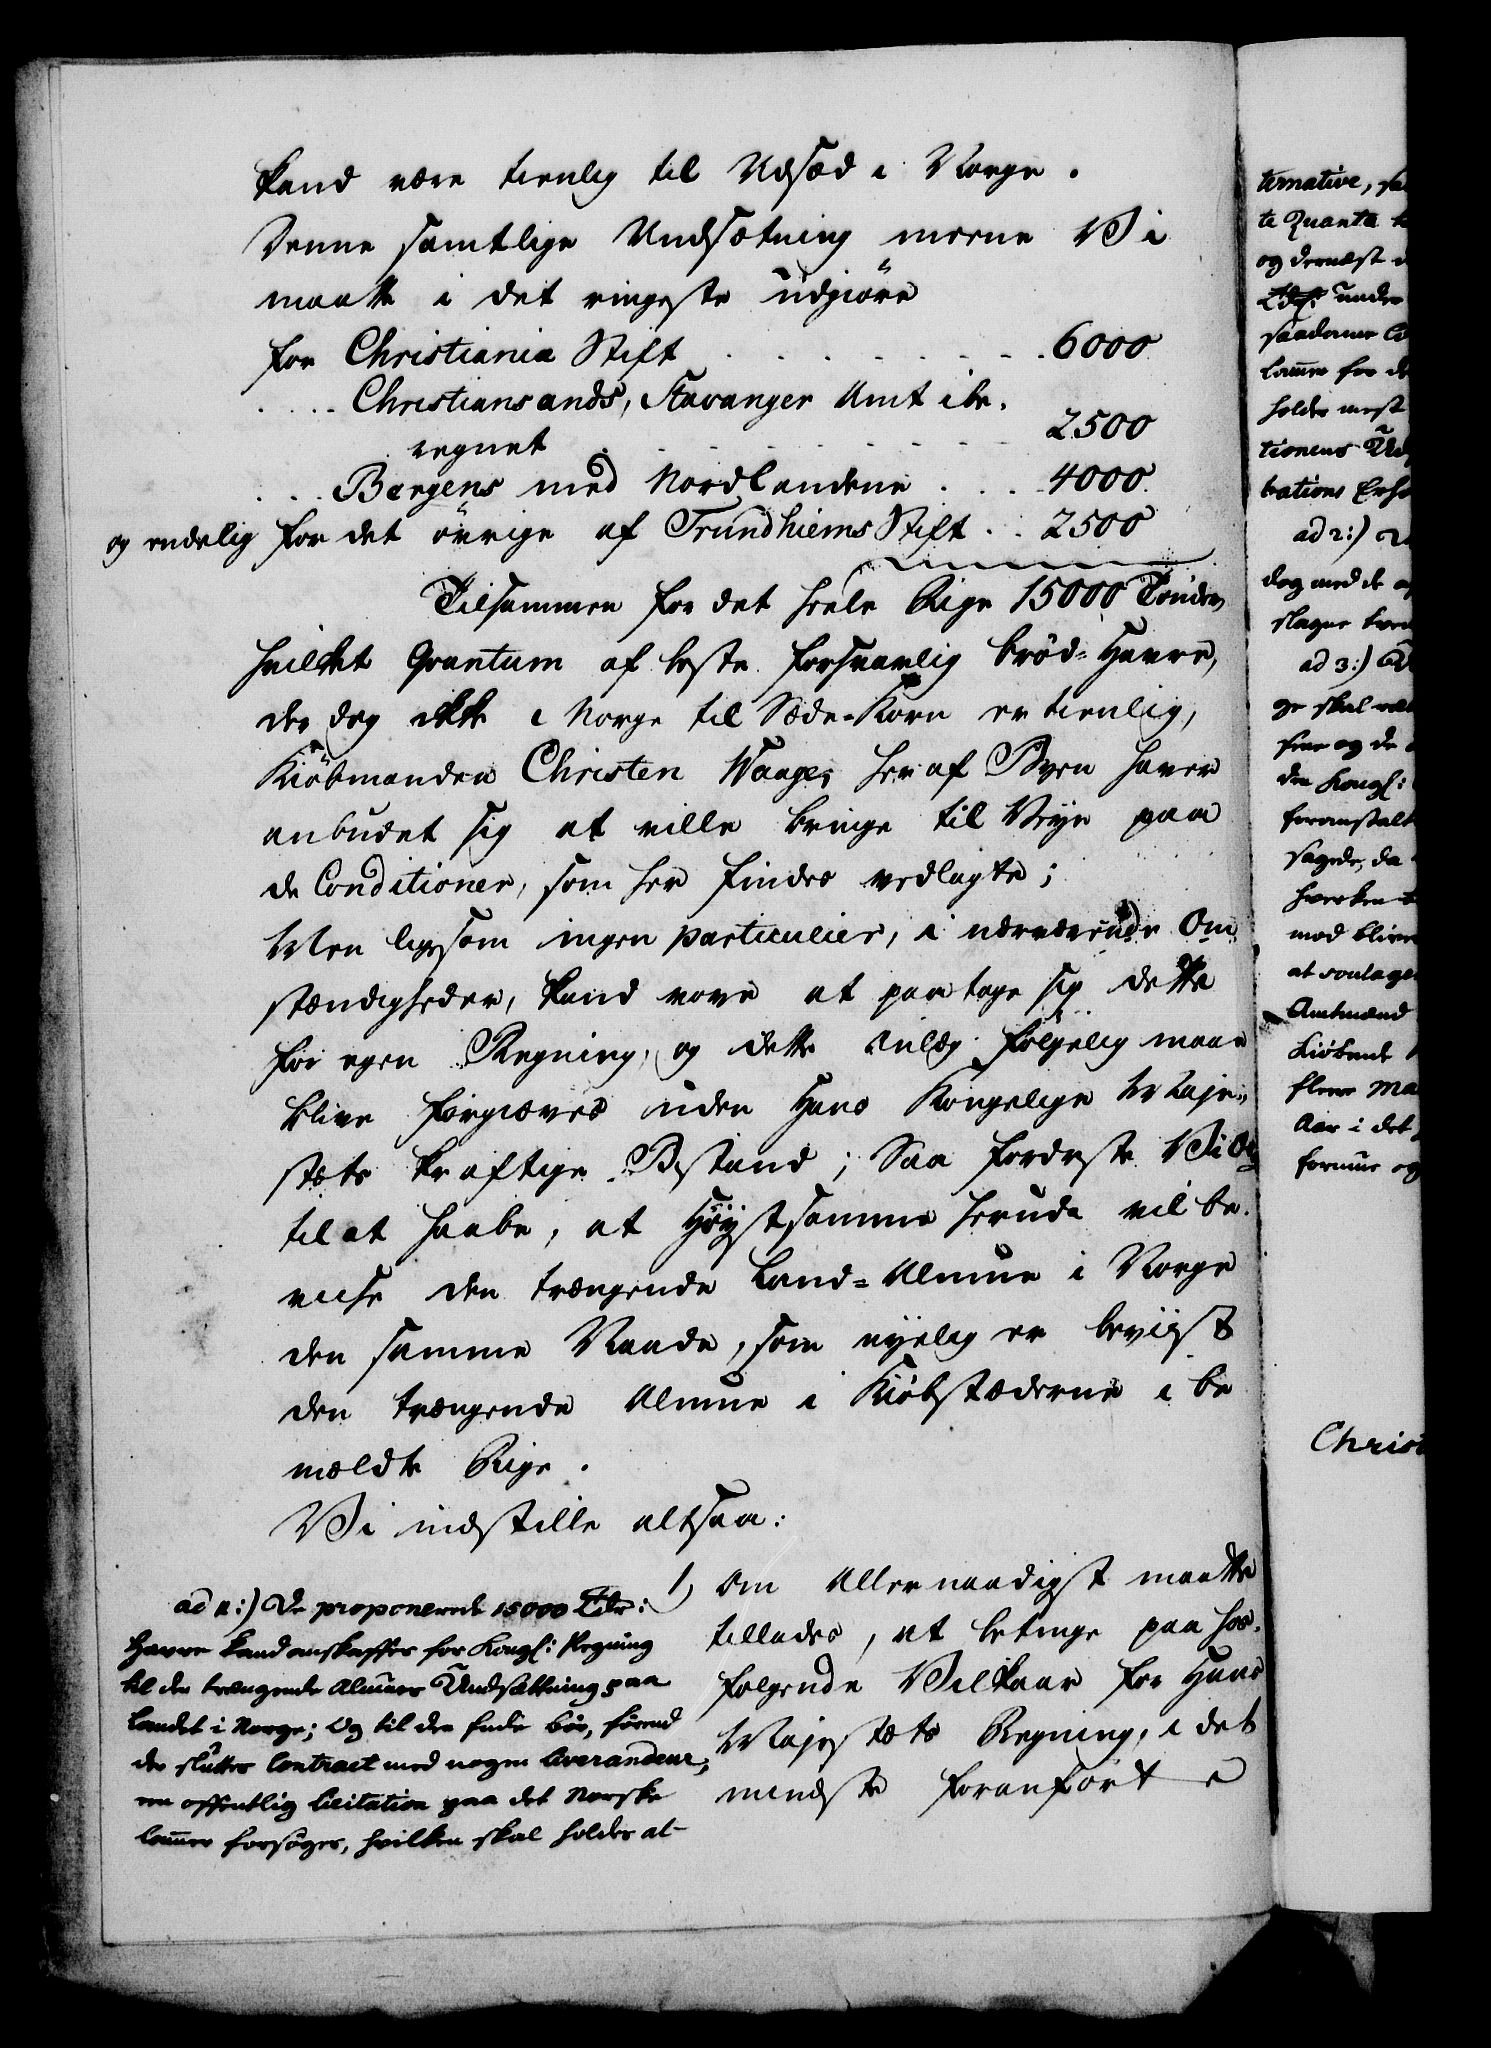 kand være tienlig til Udsæd i Norge.
Denne samtlige Undsætning meene Vi
maatte i det ringeste udgiøre
for Christiania Stift . . . . . . . . 6000
. . . . Christiansands, Stavanger Amt ibe-
regnet . . . . . . . . 2500
. . . Bergens med Nordlandene . . . . 4000
og endelig for det øvrige af Trundhiems Stift . . 2500
Tilsammen for det heele Rige 15000 Tønder
hvilket Qvantum af beste forsvarlig brød-Havre,
der dog ikke i Norge til Sæde-Korn er tienlig,
Kiøbmanden Christen Waage, her af Byen haver
anbudet sig at ville bringe til Veye paa
de Conditioner, som her findes vedlagte;
Men ligesom ingen particulier, i nærværende Om-
stændigheder, kand vove at paatage sig dette
for egen Regning, og dette Anlæg følgelig maae
blive forgiæves uden Hans Kongelige Maje-
stæts kraftige Bistand; Saa fordriste Vi os
til at haabe, at Høystsamme herudi vil be-
viise den trængende Land-Almue i Norge
den samme Naade, som nyelig er beviist
den trængende Almue i Kiøbstæderne i be
meldte Rige.
Vi indstille altsaa:
1) Om Allernaadigst maatte
tillades, at betinge paa hos-
følgende Vilkaar for Hans
Majestæts Regning, i det
mindste foranførte
ad 1:) De proponerede 15000 Tdr:
Havre kand anskaffes for Kongl: Regning
til den trængende Almues Undsættning paa
Landet i Norge; Og til den Ende bør, førend
der sluttes Contract med nogen Leverandeur,
en offentlig Licitation paa det Norske
Cammer forsøges, hvilken skal holdes al-
ternative,
te Quanta
og dernæst
Tdr: under
saadanne
Cammer for
holdes mest
tionens
bations
ad 2:)
dog med de
slagne
ad 3:)
ge skal
frie og de
den Kongl:
foranstalt
sagede, da
hverken
mod blive
at
Amtmænd
Kiøbende
fleere
Aar i det
fornuue og
Christ